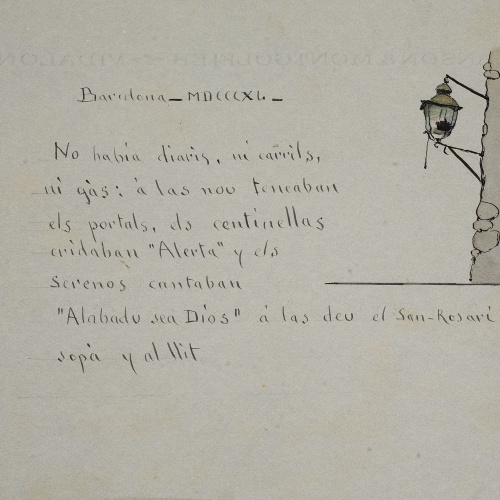 Barcelona - MDCCCXL -
No había diaris, ni carrils,
ni gàs: à las nou tencaban
els portals, els centinellas
cridaban "Alerta" y els
serenos cantaban
"Alabadu sea Dios" á las deu el San-Rosari
sopá y al llit